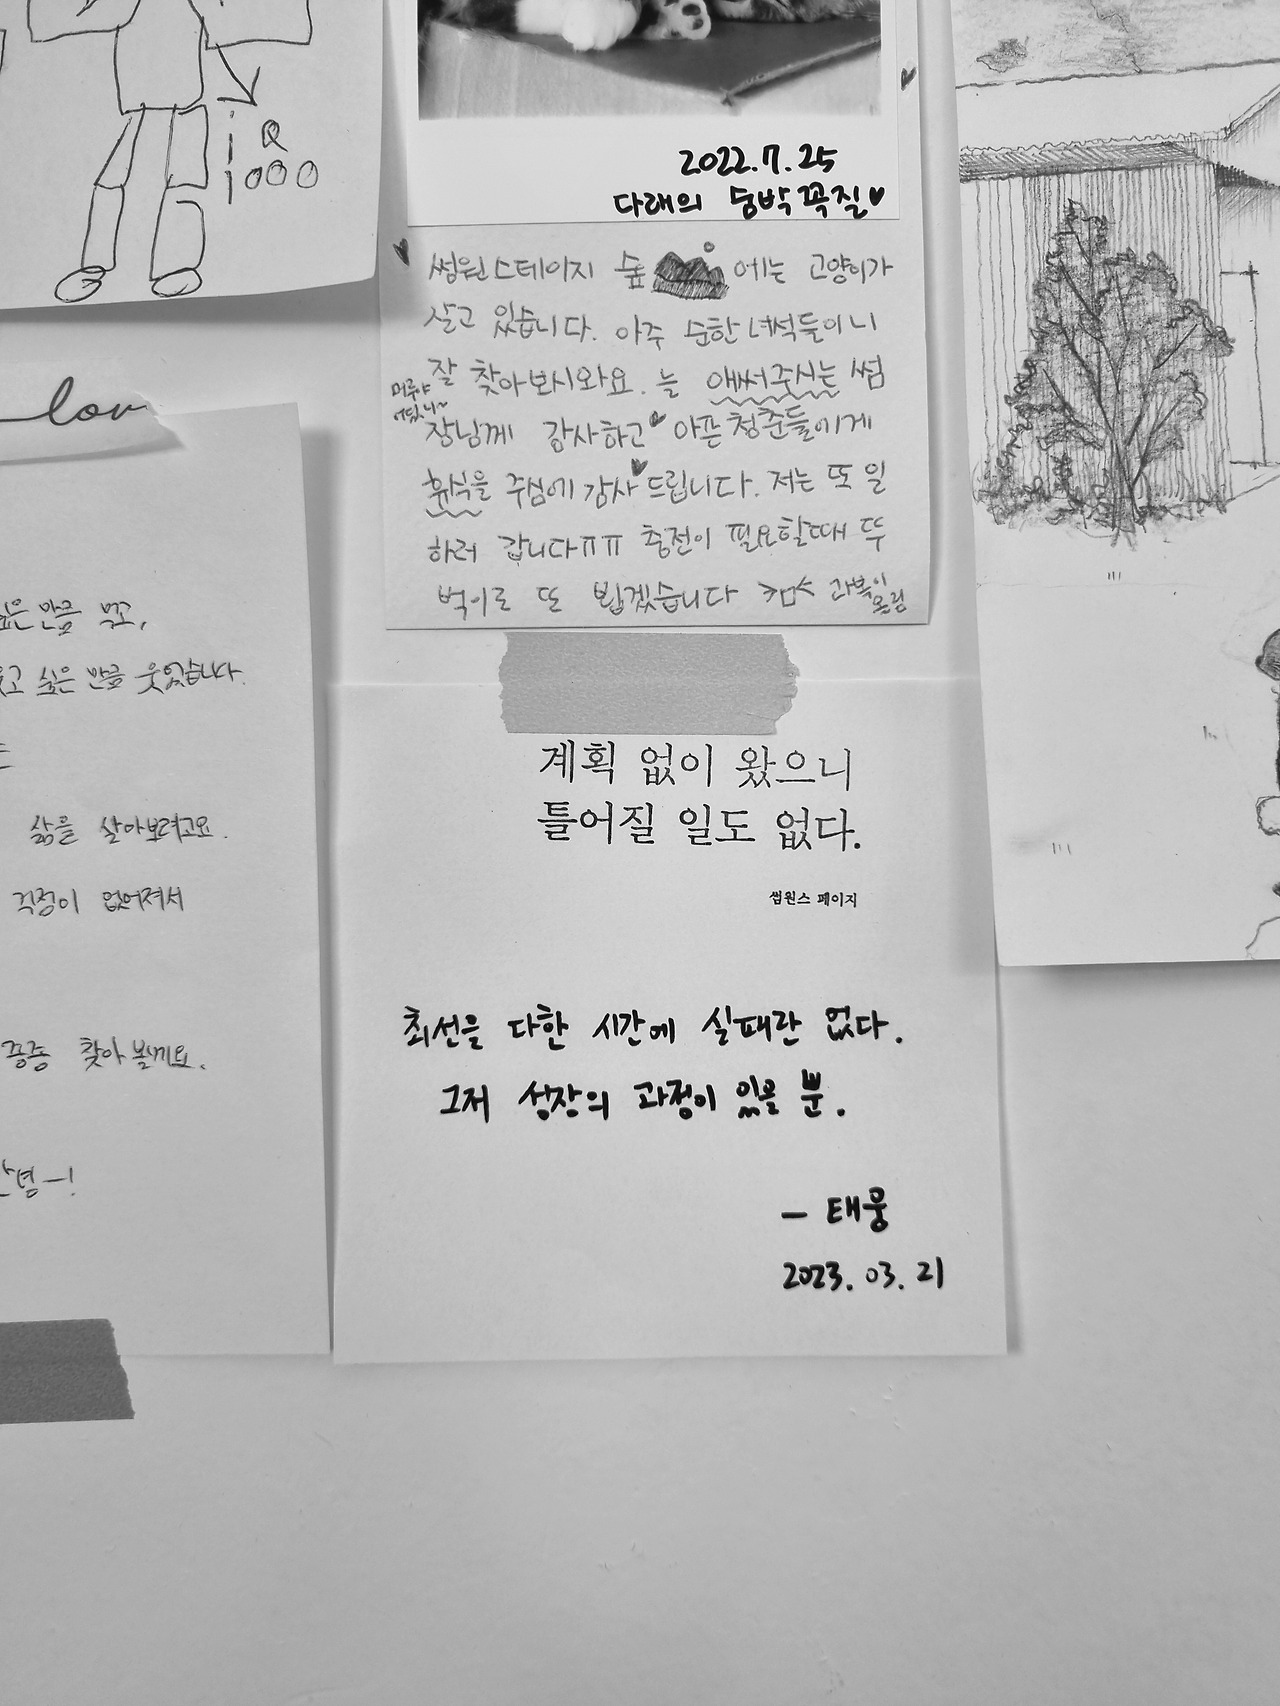 i Q
1000
2022.7.25
다래의 숭박꼭질♥
썸원스테이지 숲 에는 고양이가
살고 있습니다. 아주 순한 녀석들이니
잘 찾아보시와요. 늘 애써주시는 썸
머루야
어딨니~
장님께 감사하고 아픈 청춘들에게
휴식을 주심에 감사드립니다. 저는 또 일
하러 갑니다ㅠㅠ 충전이 필요할때 뚜
벅이로 또 뵙겠습니다
lov
싶은 만큼 먹고,
웃고 싶은 만큼 웃었습니다.
삶을 살아보려고요.
걱정이 없어져서
종종 찾아 볼게요.
안녕-!
계획 없이 왔으니
틀어질 일도 없다.
썸원스 페이지
최선을 다한 시간에 실패란 없다.
그저 성장의 과정이 있을 뿐.
- 태웅
2023. 03. 21